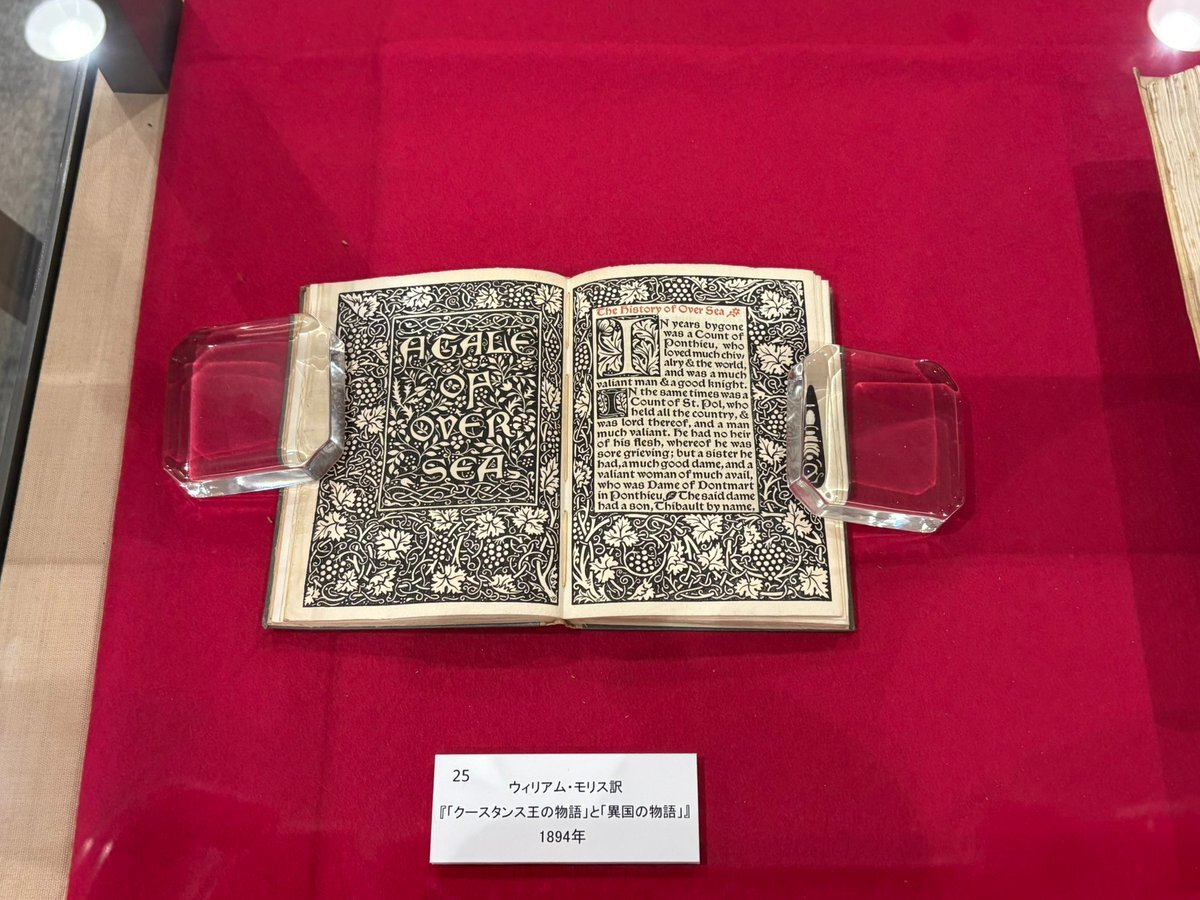 A TALE
OF
OVER
SEA
The History of Over Sea
IN years bygone
was a Count of
Ponthieu, who
loved much chiv,
alry & the world,
and was a much
valiant man & a good knight.
IN the same times was a
Count of St. Pol, who
held all the country, &
was lord thereof, and a man
much valiant. He had no heir
of his flesh, whereof he was
sore grieving; but a sister he
had, a much good dame, and a
valiant woman of much avail,
who was Dame of Dontmart
in Ponthieu. The said dame
had a son, Thibault by name,
25
ウィリアム・モリス訳
『「クースタンス王の物語」と「異国の物語」』
1894年